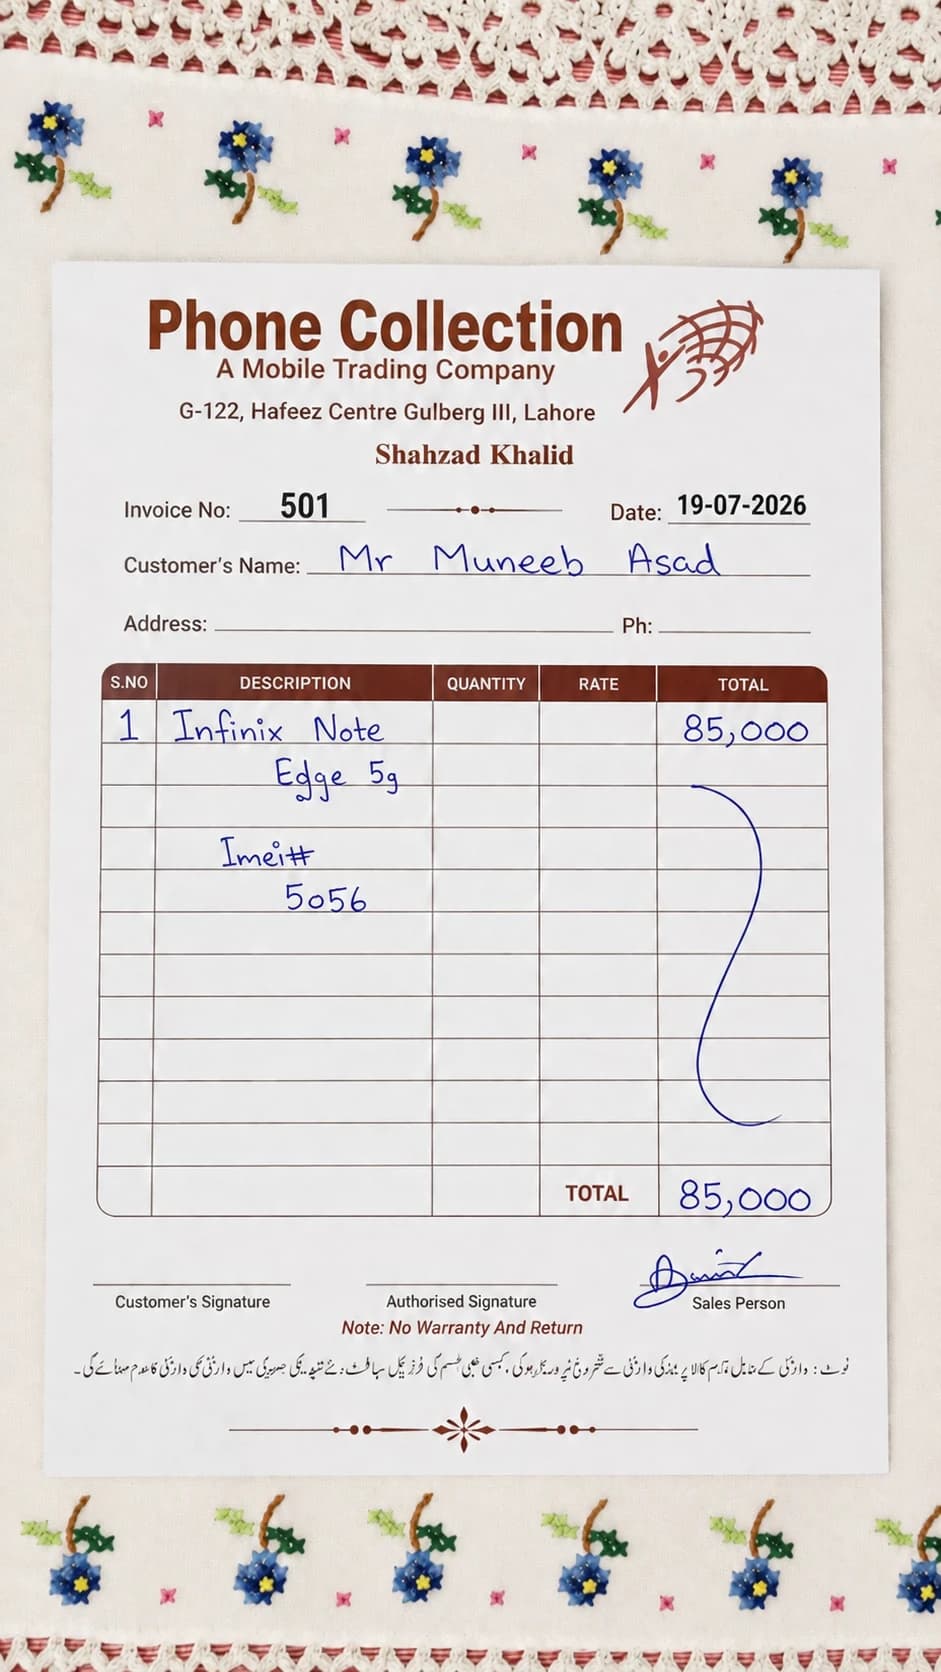 Phone Collection
A Mobile Trading Company
G-122, Hafeez Centre Gulberg III, Lahore
Shahzad Khalid
Invoice No: 501 Date: 19-07-2026
Customer's Name: Mr Muneeb Asad
Address: Ph:
S.NO DESCRIPTION QUANTITY RATE TOTAL
1 Infinix Note 85,000
Edge 5g
Imei#
5056
TOTAL 85,000
Customer's Signature Authorised Signature Sales Person
Note: No Warranty And Return
نوٹ : وارنٹی کے کی وارنٹی سے میں وارنٹی کی وارنٹی